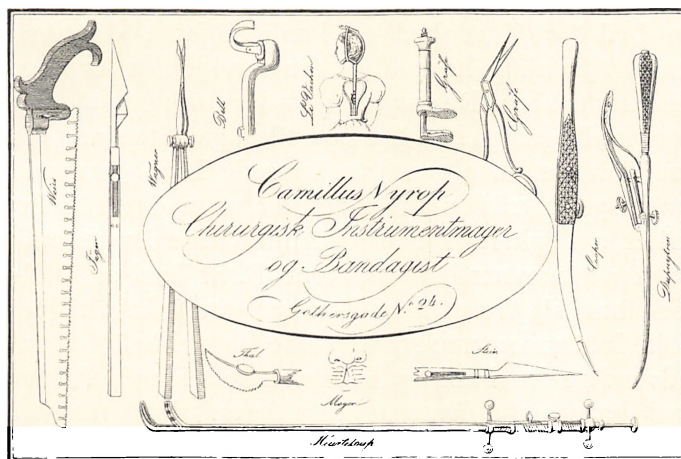 Weiss
Jæger
Wagner
Bell
Le Vacher
Graefe
Graefe
Cooper
Dupuytren
Camillus Nyrop
Chirurgisk Instrumentmager
og Bandagist
Gothersgade No. 24.
Thal
Mayor
Stein
Heurteloup